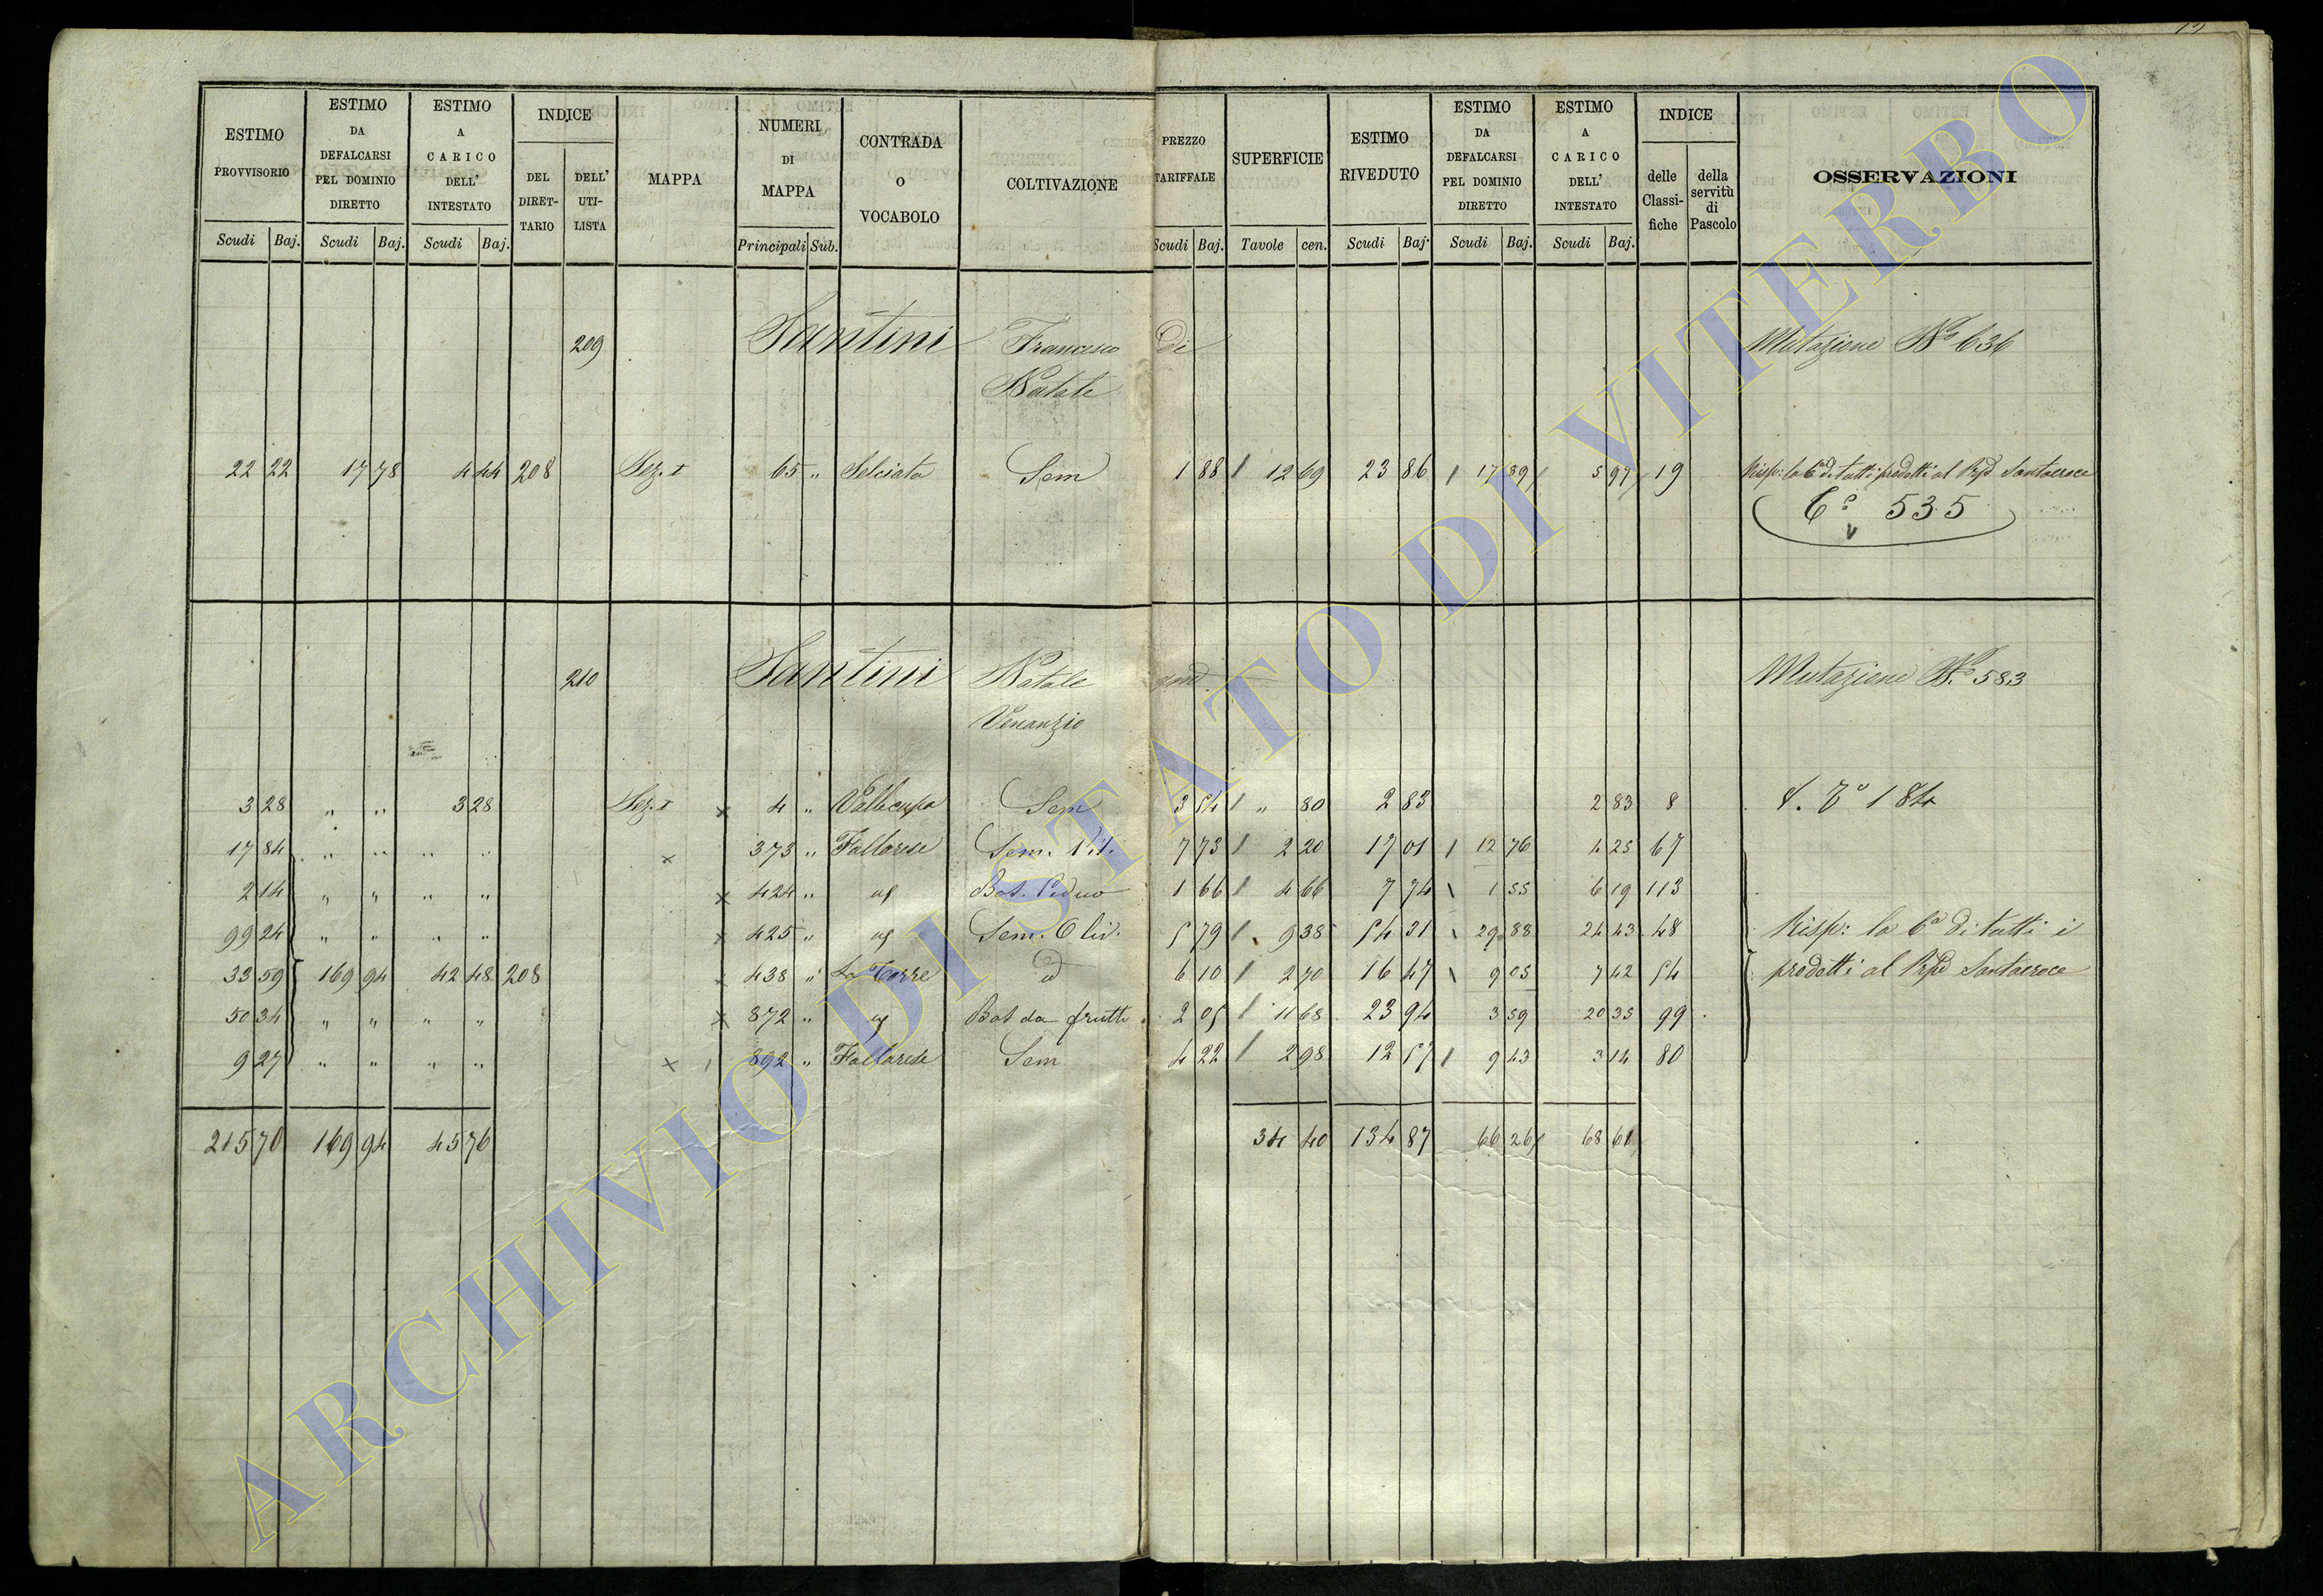 ESTIMO PROVVISORIO | ESTIMO DA DEFALCARSI PEL DOMINIO DIRETTO | ESTIMO A CARICO DELL' INTESTATO | INDICE DEL DIRETTARIO | DELL' UTILISTA | MAPPA | NUMERI DI MAPPA | CONTRADA O VOCABOLO | COLTIVAZIONE | PREZZO TARIFFALE | SUPERFICIE | ESTIMO RIVEDUTO | ESTIMO DA DEFALCARSI PEL DOMINIO DIRETTO | ESTIMO A CARICO DELL' INTESTATO | INDICE delle Classifiche | della servitù di Pascolo | OSSERVAZIONI
Scudi Baj. | Scudi Baj. | Scudi Baj. | Principali Sub. | Scudi Baj. | Tavole cen. | Scudi Baj. | Scudi Baj. | Scudi Baj.
209 Santini Francesco di Mutazione N.º 636
Natale
22 22 17 78 4 44 208 Sez. I 65 " Selciata Sem 1 88 12 69 23 86 17 89 5 97 19 Risp: la 6ª di tutti i prodotti al Rspd Santacroce
Cº 535
210 Santini Natale quod. Mutazione N.º 583
Venanzio
3 28 " " 3 28 Sez. I 4 " Vallecupa Sem 3 54 " 80 2 83 2 83 8 Cº 184
17 84 " " " " 373 " Fallarese Sem. Vit. 7 73 2 20 17 01 12 76 4 25 67
2 14 " " " " 424 " Bos. Ceduo 1 66 4 66 7 74 1 55 6 19 113
99 24 " " " " 425 " Sem. Oliv. 5 79 9 38 54 31 29 88 24 43 48 Risp: la 6ª di tutti i
33 59 169 94 42 48 208 438 " La Torre id 6 10 2 70 16 47 9 05 7 42 54 prodotti al Rspd Santacroce
50 34 " " " " 872 " Bos da frutti 2 05 11 68 23 94 3 59 20 35 99
9 27 " " " " 892 " Fallarese Sem 4 22 2 98 12 57 9 43 3 14 80
215 70 169 94 45 76 34 40 134 87 66 26 68 61
ARCHIVIO DI STATO DI VITERBO